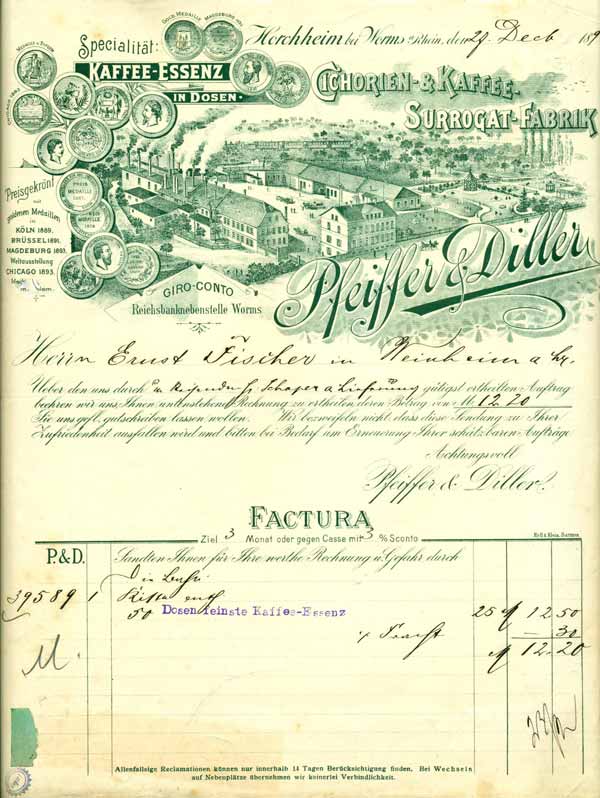 Horchheim bei Worms a/Rhein, den 29 Decb 189
Specialität:
KAFFEE-ESSENZ
IN DOSEN
GOLD MEDAILLE
MAGDEBURG 1893
CHICAGO 1893
CICHORIEN- & KAFFEE-
SURROGAT-FABRIK
Preisgekrönt
mit
goldenen Medaillen
in
KÖLN 1889.
BRÜSSEL 1891.
MAGDEBURG 1893.
Weltausstellung
CHICAGO 1893.
PREIS MEDAILLE
Pfeiffer & Diller
GIRO-CONTO
Reichsbanknebenstelle Worms
Herrn Ernst Fischer in Weinheim a
Ueber den uns durch gütigst ertheilten Auftrag
beehren wir uns Ihnen untenstehend Rechnung zu ertheilen deren Betrag von M. 12 20
Sie uns gefl. gutschreiben lassen wollen. Wir bezweifeln nicht dass diese Sendung zu Ihrer
Zufriedenheit ausfallen wird und bitten bei Bedarf um Erneuerung Ihrer schätzbaren Aufträge
Achtungsvoll
Pfeiffer & Diller.
FACTURA
Ziel 3 Monat oder gegen Casse mit 3 % Sconto
P. & D. Sandten Ihnen für Ihre werthe Rechnung u. Gefahr durch
39589 1 Kiste enth
50 Dosen feinste Kaffee-Essenz 25 M 12.50
% Fracht — 30
M 12.20
M.
Allenfallsige Reclamationen können nur innerhalb 14 Tagen Berücksichtigung finden. Bei Wechseln
auf Nebenplätze übernehmen wir keinerlei Verbindlichkeit.